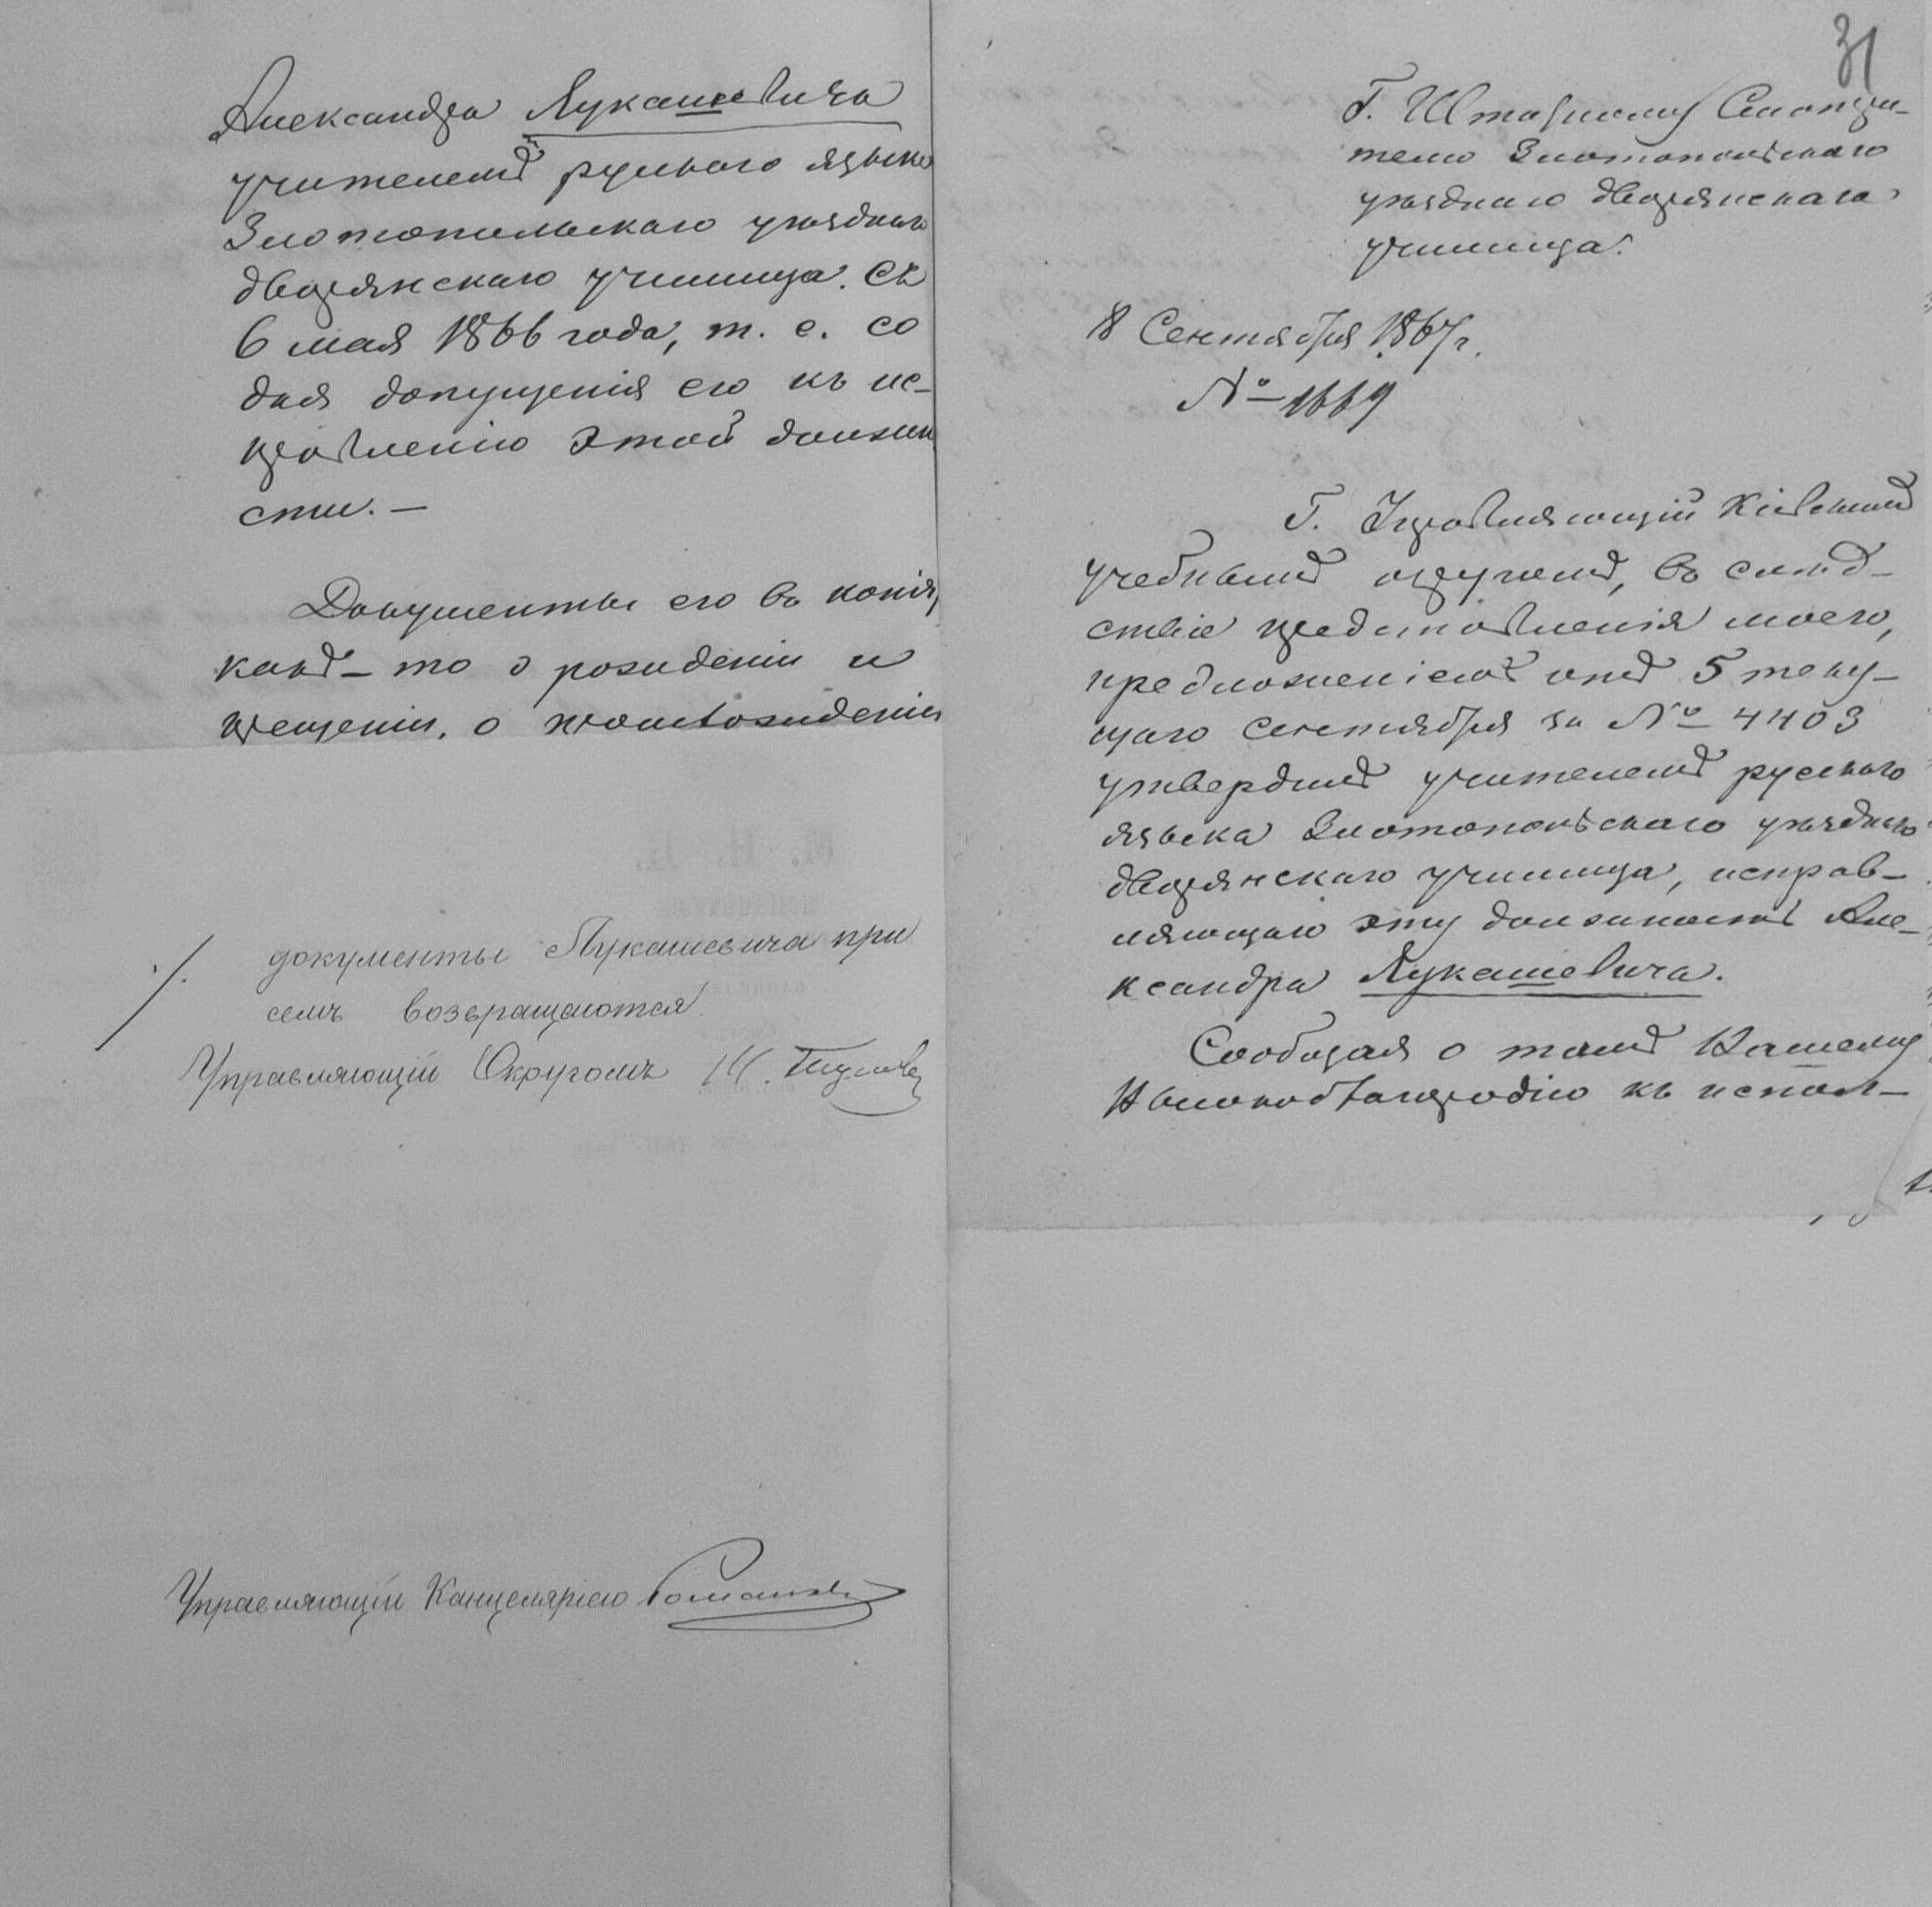 Александра Лукашевича
учителемъ русскаго языка
Златопольскаго уѣзднаго
дворянскаго училища съ
6 мая 1866 года, т. е. со
дня допущенія его къ ис-
правленію этой должно
сти. —
Документы его въ копіи,
какъ-то о рожденіи и
крещеніи, о
документы Лукашевича при
семъ возвращаются.
Управляющій Округомъ М. Тулов
Управляющій Канцеляріею
31
Г. Штатному Смотри-
телю Златопольскаго
уѣзднаго дворянскаго
училища.
8 Сентября 1867 г.
№ 1669
Г. Управляющій Кіевскимъ
учебнымъ округомъ, въ слѣд-
ствіе представленія моего,
предложеніемъ отъ 5 теку-
щаго сентября за № 4403
утвердилъ учителемъ русскаго
языка Златопольскаго уѣзднаго
дворянскаго училища, исправ-
ляющаго эту должность Але-
ксандра Лукашевича.
Сообщая о томъ Вашему
Высокоблагородію къ испол-